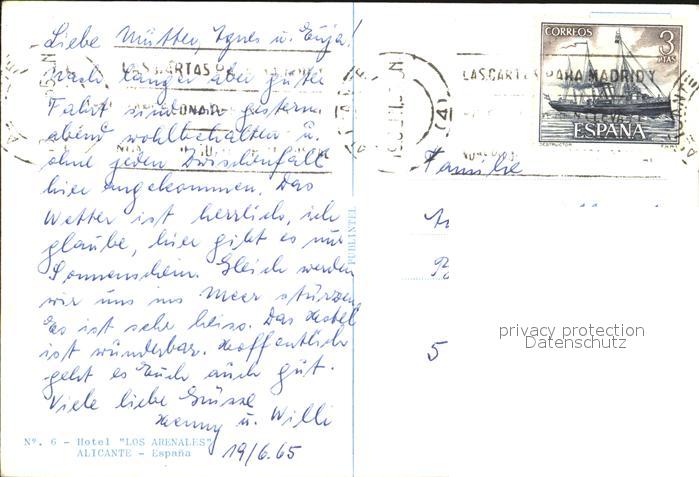 Liebe Mutter, Agnes u. Euja!
Nach langer aber guter
Fahrt sind wir gestern
abend wohlbehalten u.
ohne jeden Zwischenfall
hier angekommen. Das
Wetter ist herrlich, ich
glaube, hier gibt es nur
Sonnenschein. Gleich werden
wir uns ins Meer stürzen.
Es ist sehr heiss. Das Hotel
ist wunderbar. Hoffentlich
geht es Euch auch gut.
Viele liebe Grüsse
Henny u. Willi
19/6.65
Nº. 6 - Hotel "LOS ARENALES"
ALICANTE - España
PUBLINTEL
CORREOS 3
PTAS
ESPAÑA
LAS CARTAS PARA MADRID Y
(4)
Familie
5
privacy protection
Datenschutz